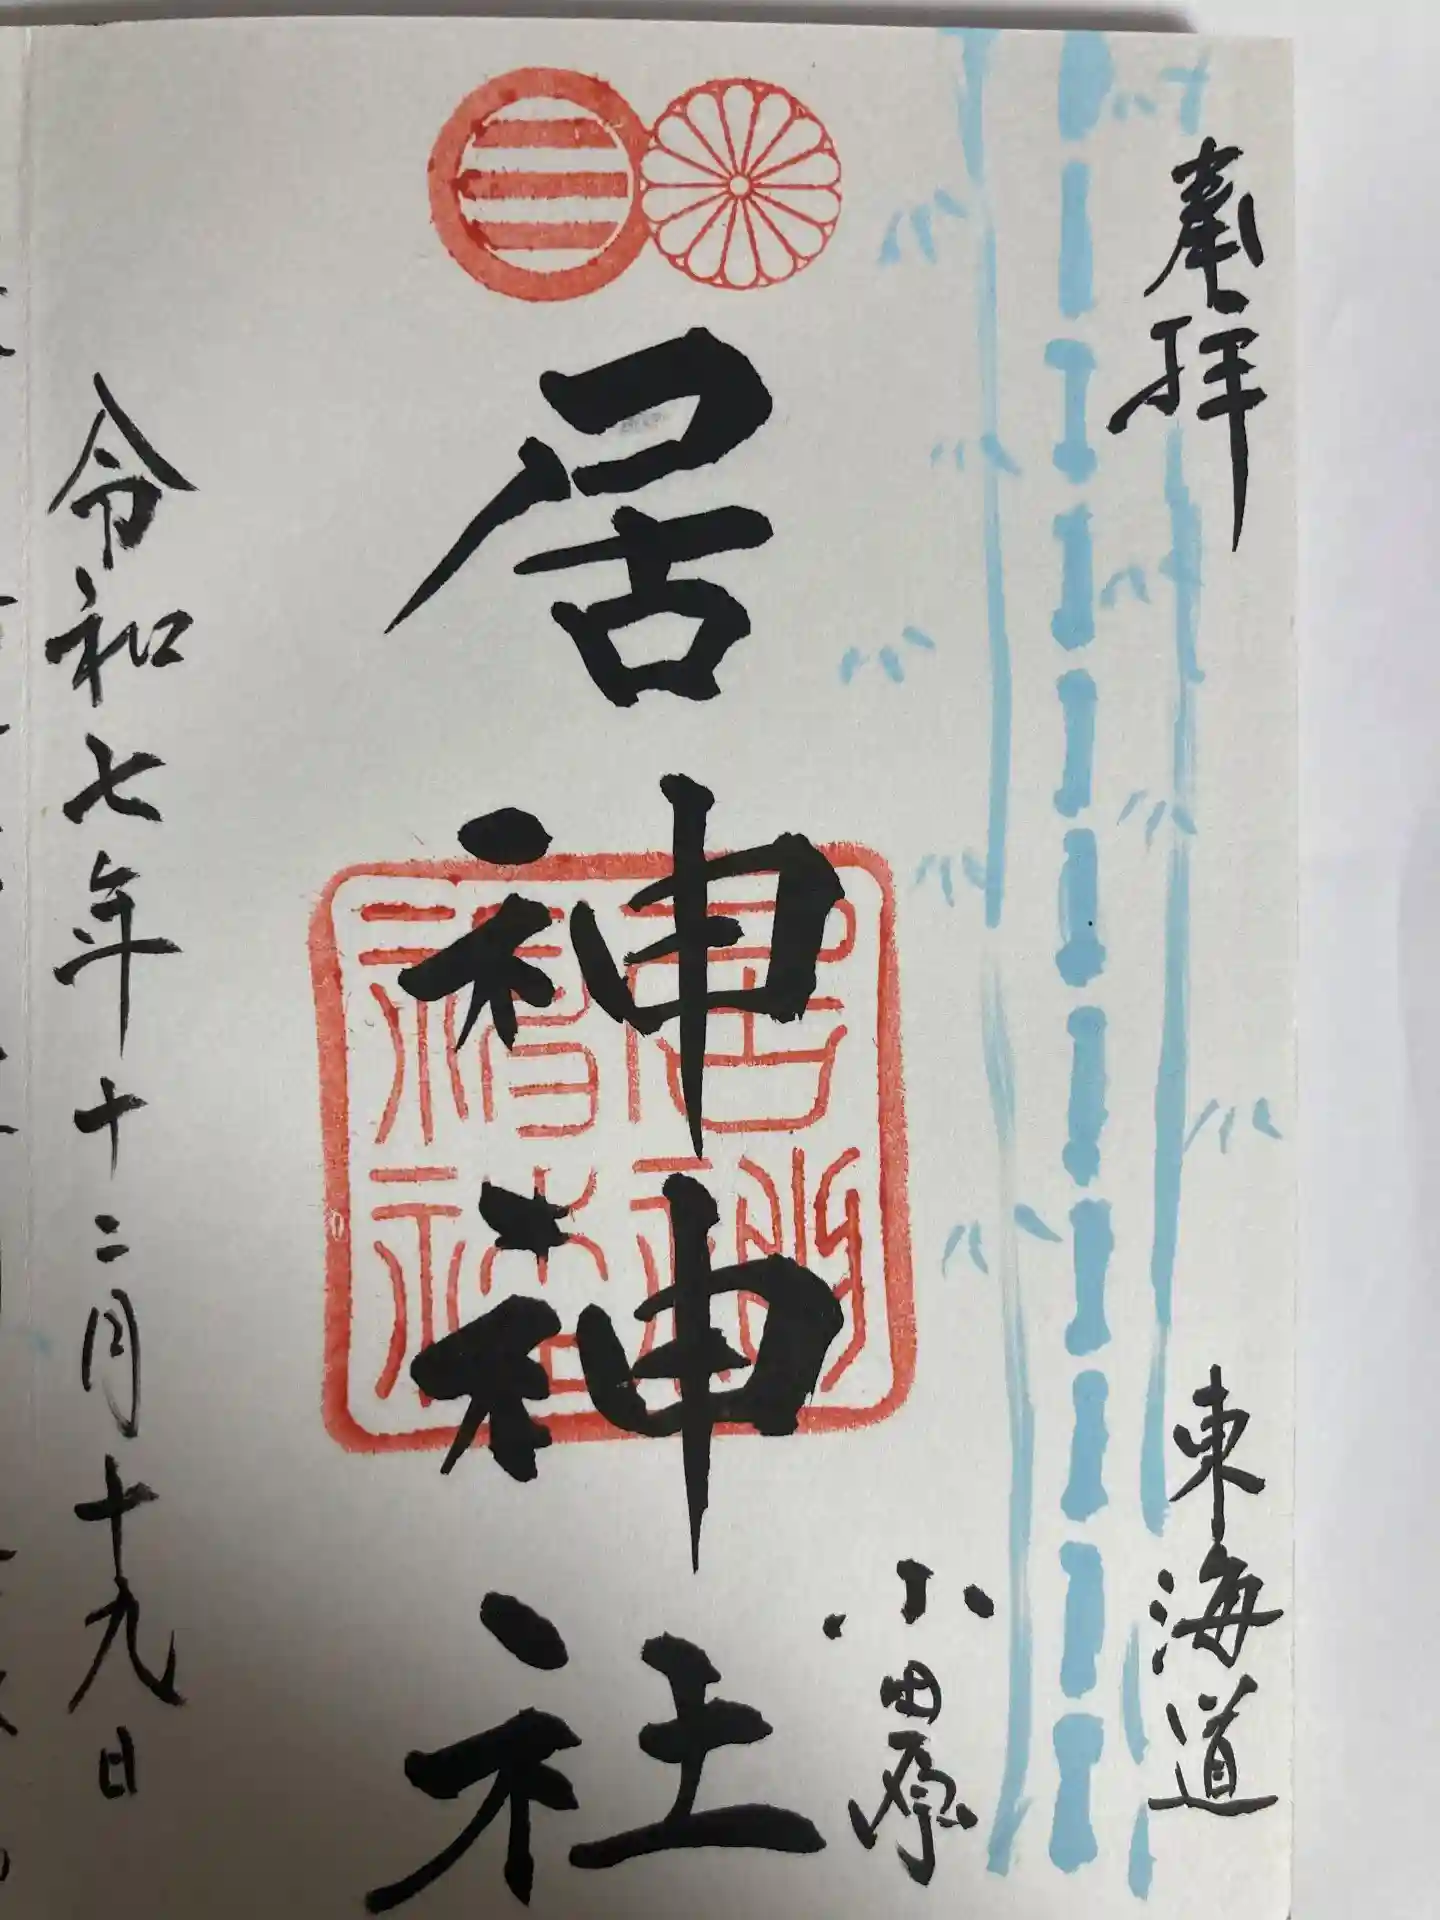 奉拝
東海道
小田原
居神神社
居神神社
令和七年十二月十九日